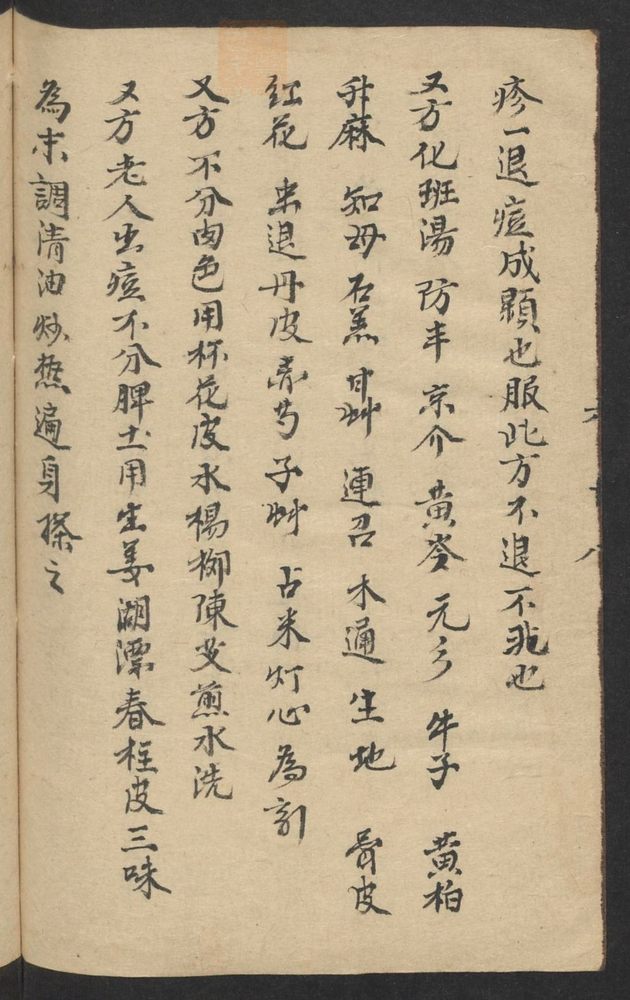 疹一退痘成顆也服此方不退不兆也
又方化班湯 防丰 京介 黄芩 元参 牛子 黄柏
升麻 知母 石羔 甘艸 連召 木通 生地 骨皮
紅花 虫退 丹皮 赤芍 子艸 占米 灯心 為引
又方不分肉色用杯花皮水楊柳陳艾煎水洗
又方老人出痘不分脾土用生姜湖漂春桂皮三味
為末調清油炒热遍身搽之
六十八